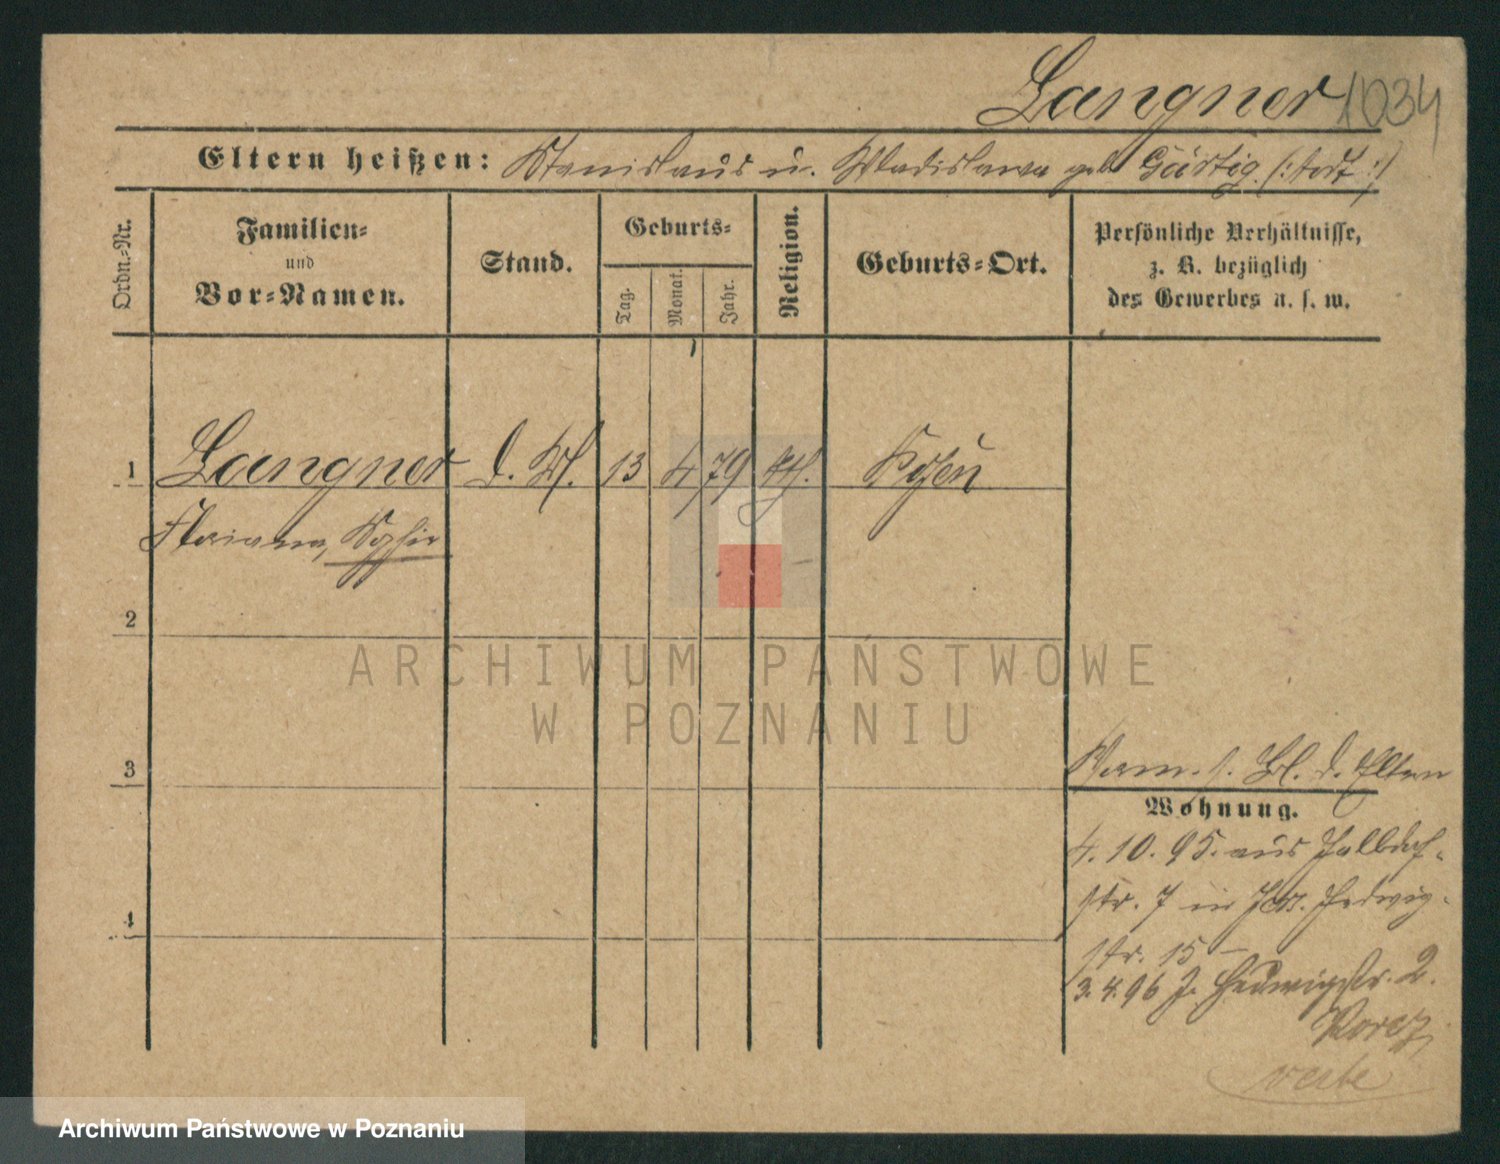 Langner 1034
Eltern heißen: Stanislaus u. Wladislawa geb. Gärtig. (: todt :)
Ordn.-Nr.
Familien-
und
Vor-Namen.
Stand.
Geburts-
Tag.
Monat.
Jahr.
Religion.
Geburts-Ort.
Persönliche Verhältnisse,
z. B. bezüglich
des Gewerbes u. s. w.
1 Langner 13 4 79 kth. Posen
2
3
4
d. Eltern
Wohnung.
4. 10. 95. aus Halbdorf-
str. 7 in Jer. Hedwig-
str. 15 –
3. 4. 96 J. Hedwigstr. 2.
ARCHIWUM PAŃSTWOWE
W POZNANIU
Archiwum Państwowe w Poznaniu